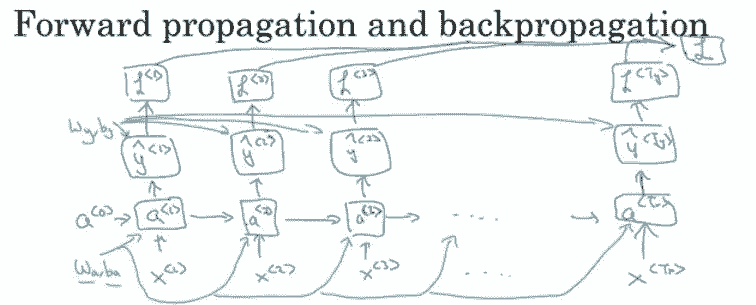 Forward propagation and backpropagation
L
L<1> L<2> L<3> L<Ty>
Wy,by
ŷ<1> ŷ<2> ŷ<3> ŷ<Ty>
a<0> a<1> a<2> a<3> .... a<Tx>
Wa,ba x<1> x<2> x<3> .... x<Tx>